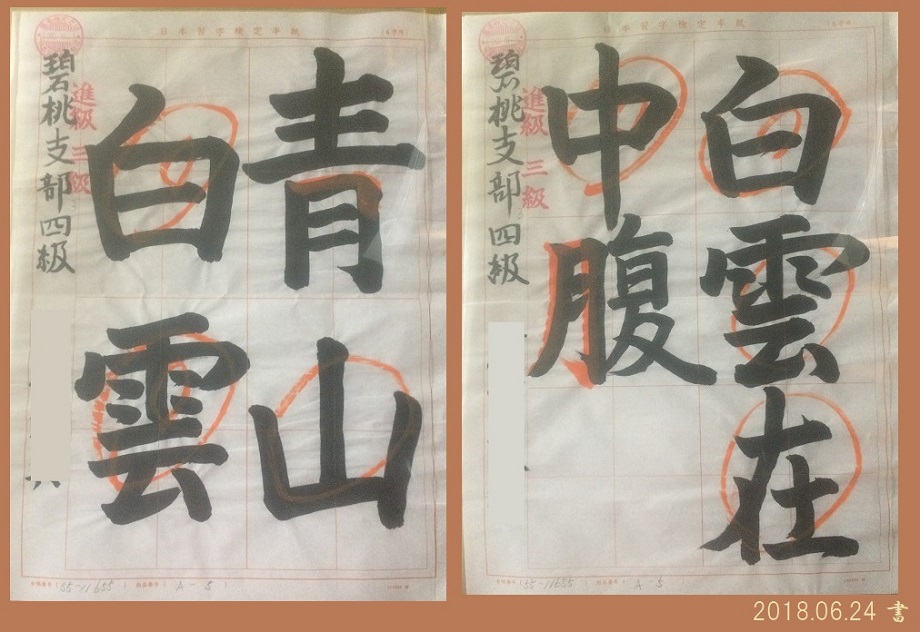 日本習字検定半紙
青山
白雲
進級 三級
碧桃支部四級
(55-11655)
(A-5)
日本習字検定半紙
白雲在
中腹
進級 三級
碧桃支部四級
(55-11655)
(A-5)
2018.06.24 書